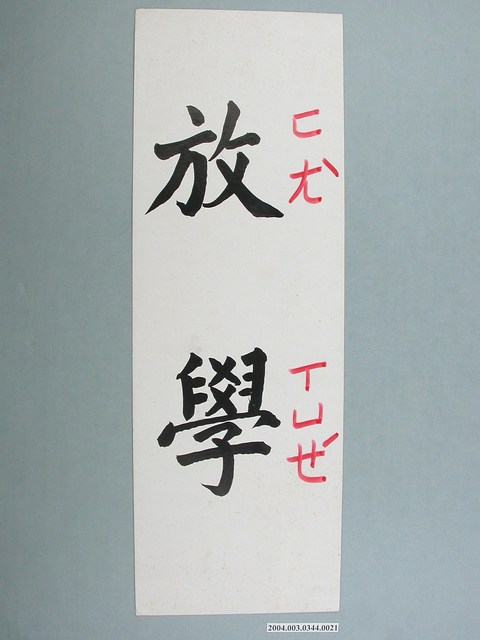 放 ㄈㄤˋ
學 ㄒㄩㄝˊ
2004.003.0344.0021